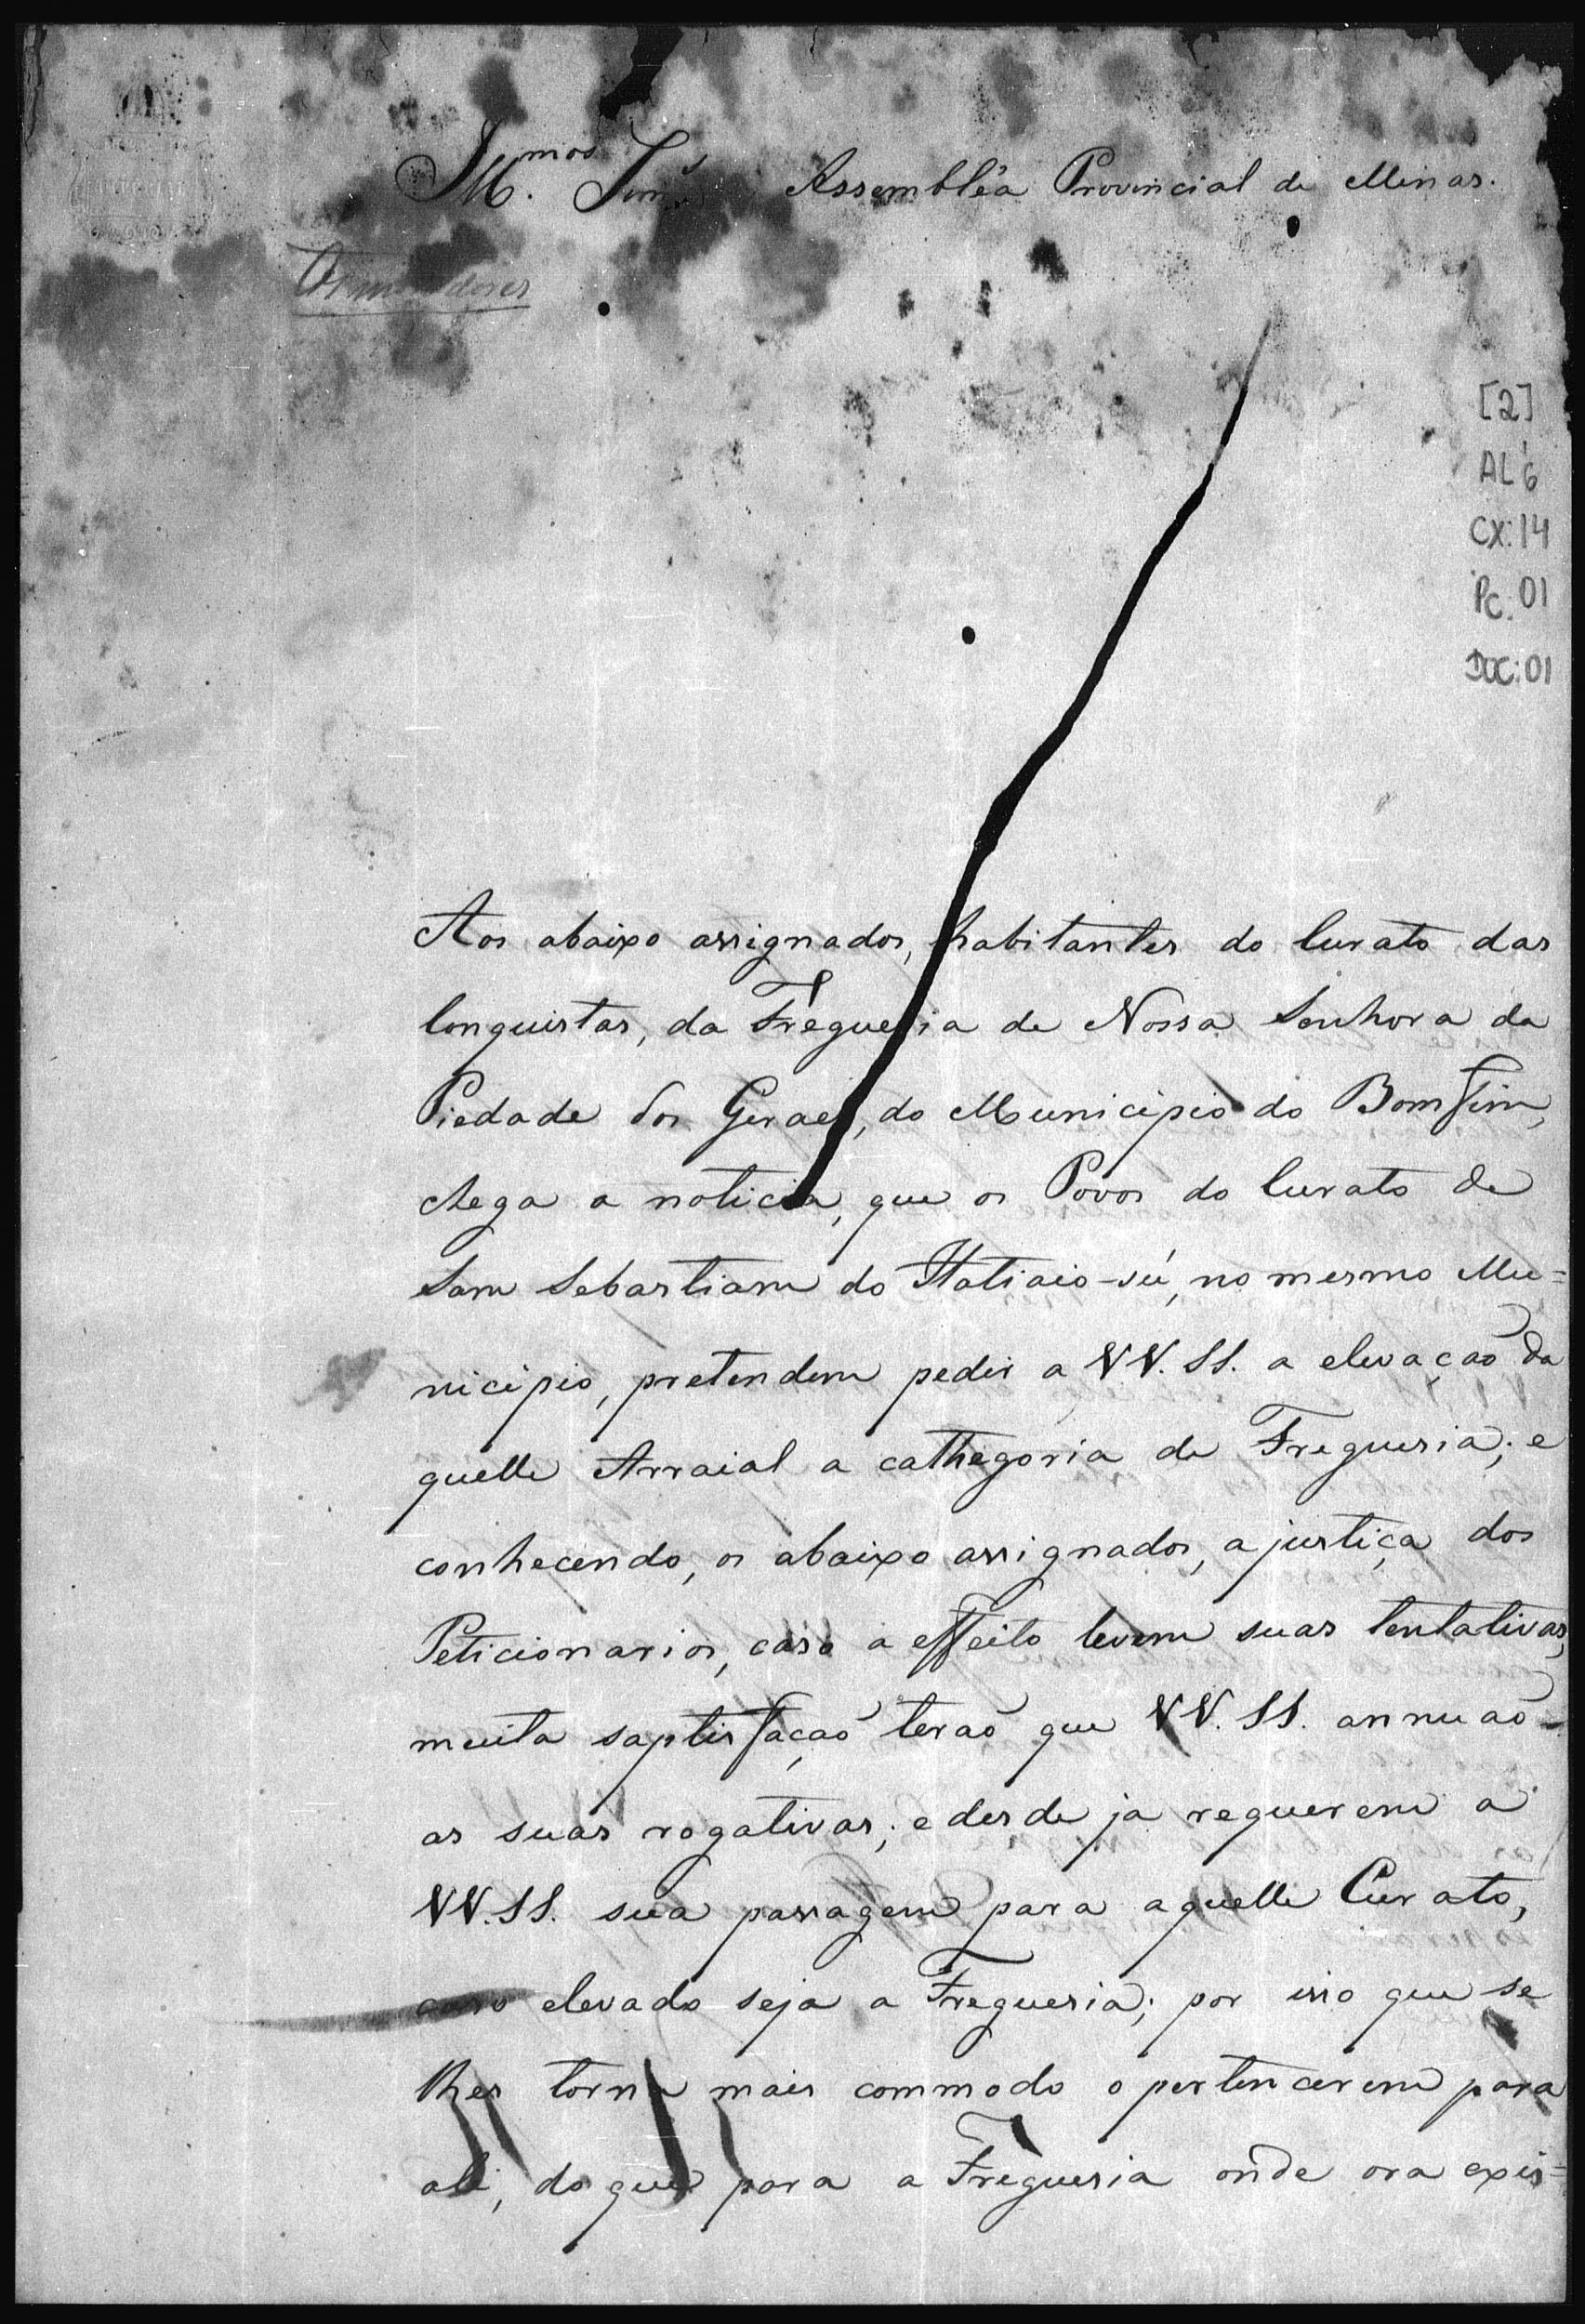 Assembléa Provincial de Minas.
[2]
AL 6
CX: 14
Pc: 01
DOC: 01
Aos abaixo assignados, habitantes do Curato das
Conquistas, da Freguesia de Nossa Senhora da
Piedade dos Geraes, do Municipio do Bomfim,
chega a noticia, que os Povos do Curato de
Sam Sebastiam do Itatiaio-sú, no mesmo Mu=
nicipio, pretendem pedir a VV. SS. a elevação da
quelle Arraial a cathegoria de Freguesia; e
conhecendo, os abaixo assignados, a justiça dos
Peticionarios, caso a effeito levem suas tentativas,
muita saptisfação terão que VV. SS. annuão
as suas rogativas; e desde ja requerem a
VV. SS. sua passagem para aquelle Curato,
caso elevado seja a Freguesia; por isso que se
lhes torna mais commodo o pertencerem para
ali, do que para a Freguesia onde ora exis=